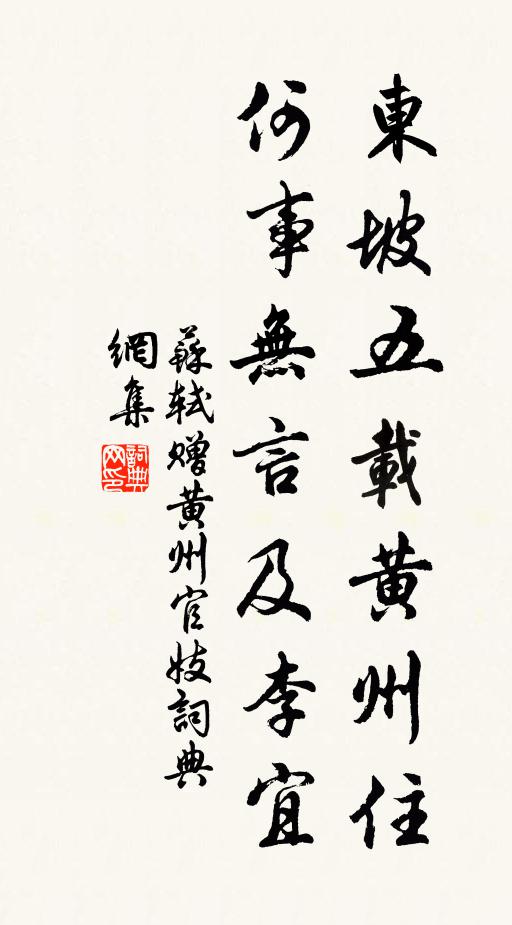 東坡五載黄州住
何事無言及李宜
蘇軾赠黄州官妓詞典
網集
詞典
网印